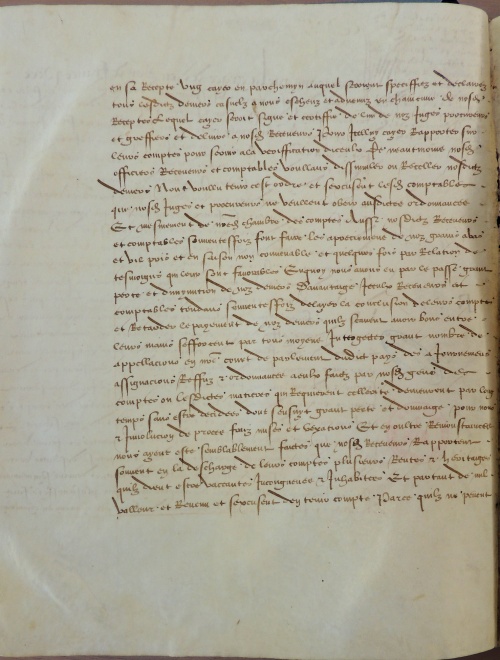 en sa Recepte Ung cayer en parchemyn auquel seront speciffiez et declairez
tous lesdictz deniers casuelz a nous escheuz et advenuz en chascune de nosd
Receptes lequel cayer seroit signe et certiffie de l'un de noz Juges procureurs
et greffiers et delivre a nosd Receveurs pour Icelluy cayer Rapporter sur
leurs comptes pour servir a la veriffication d'iceulx Et neantmoins nosd
officiers Receveurs et comptables voullans dissimuler ou Receller nosdictz
deniers N'ont voullu tenir cest ordre et s'excusent lesd comptables
que nosd Juges et procureurs ne veullent obeir ausdictes ordonnances
Et mesmement de nostred chambre des comptes Aussi nosdictz Receveurs
et comptables souventesfois font faire les appreciacions de noz grains a bas
et vil pris et en saison non convenable et quelque fois par Relation de
tesmoigns qui leur sont favorables En quoy nous avons eu par le passe grant
perte et diminution de noz deniers Davantage Iceulx Receveurs et
comptables tendans souventesfois delayer la conclusion de leurs comptes
et Retarder le payement de noz deniers qu'ilz scavent avoir bons entre
leurs mains s'efforcent par tous moyens Interjecter grant nombre de
appellacions en nostre court de parlement dudict pays des adjournemens
assignacions Reffuz et ordonnances a eulx faictz par nosd gens des
comptes ou lesdictes matieres qui Requierent cellerite demeurent par long
temps sans estre decidees dont s'ensuyt grant perte et dommaige pour nous
et Involucion de proces fraiz mises et vexations Et en oultre Remonstrances
nous ayent este semblablement faictes que nosd Receveurs Rapportent
souvent en la descharge de leurs comptes plusieurs Rentes et heritages
qu'ilz dient estre vaccantes Incongneues et Inhabitees Et partant de nul
valleur et Revenu et s'excusent d'en tenir compte Parce qu'ilz ne peuent